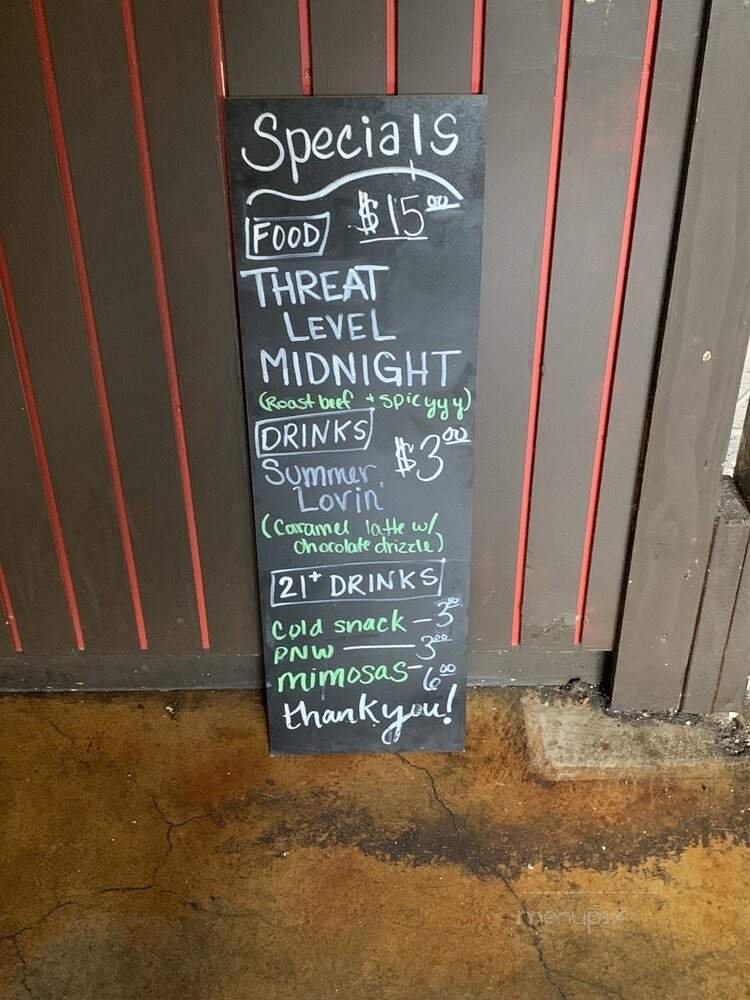 Specials
FOOD $15.00
THREAT
LEVEL
MIDNIGHT
(Roast beef + spicyyy)
DRINKS $3.00
Summer
Lovin'
(Caramel latte w/
chocolate drizzle)
21+ DRINKS
cold snack - 3.00
PNW - 3.00
mimosas - 6.00
thank you!
menupix